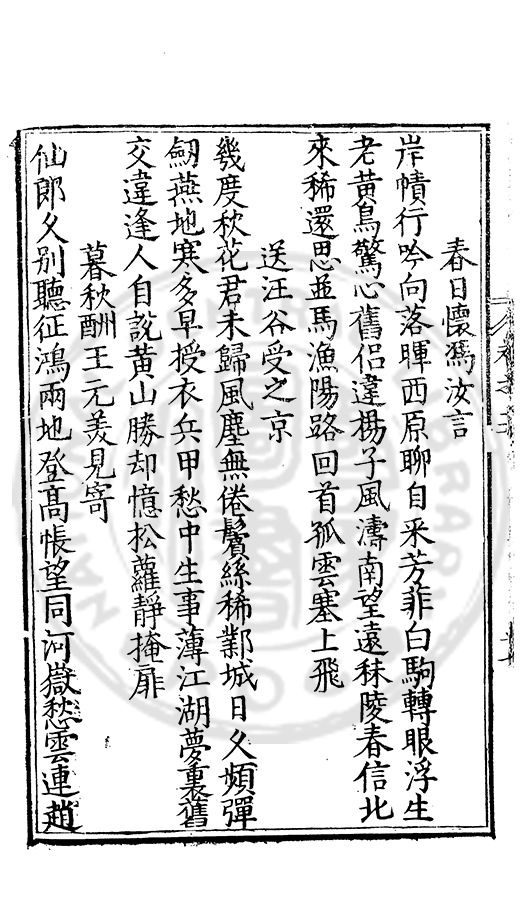 春日懷馮汝言
岸幘行吟向落暉西原聊自采芳菲白駒轉眼浮生
老黃鳥驚心舊侶違楊子風濤南望遠秣陵春信北
來稀還思並馬漁陽路回首孤雲塞上飛
送汪谷受之京
幾度秋花君未歸風塵無倦鬢絲稀鄴城日久頻彈
劒燕地寒多早授衣兵甲愁中生事薄江湖夢裏舊
交違逢人自說黃山勝却憶松蘿靜掩扉
暮秋酬王元美見寄
仙郎久別聽征鴻兩地登高悵望同河嶽愁雲連趙